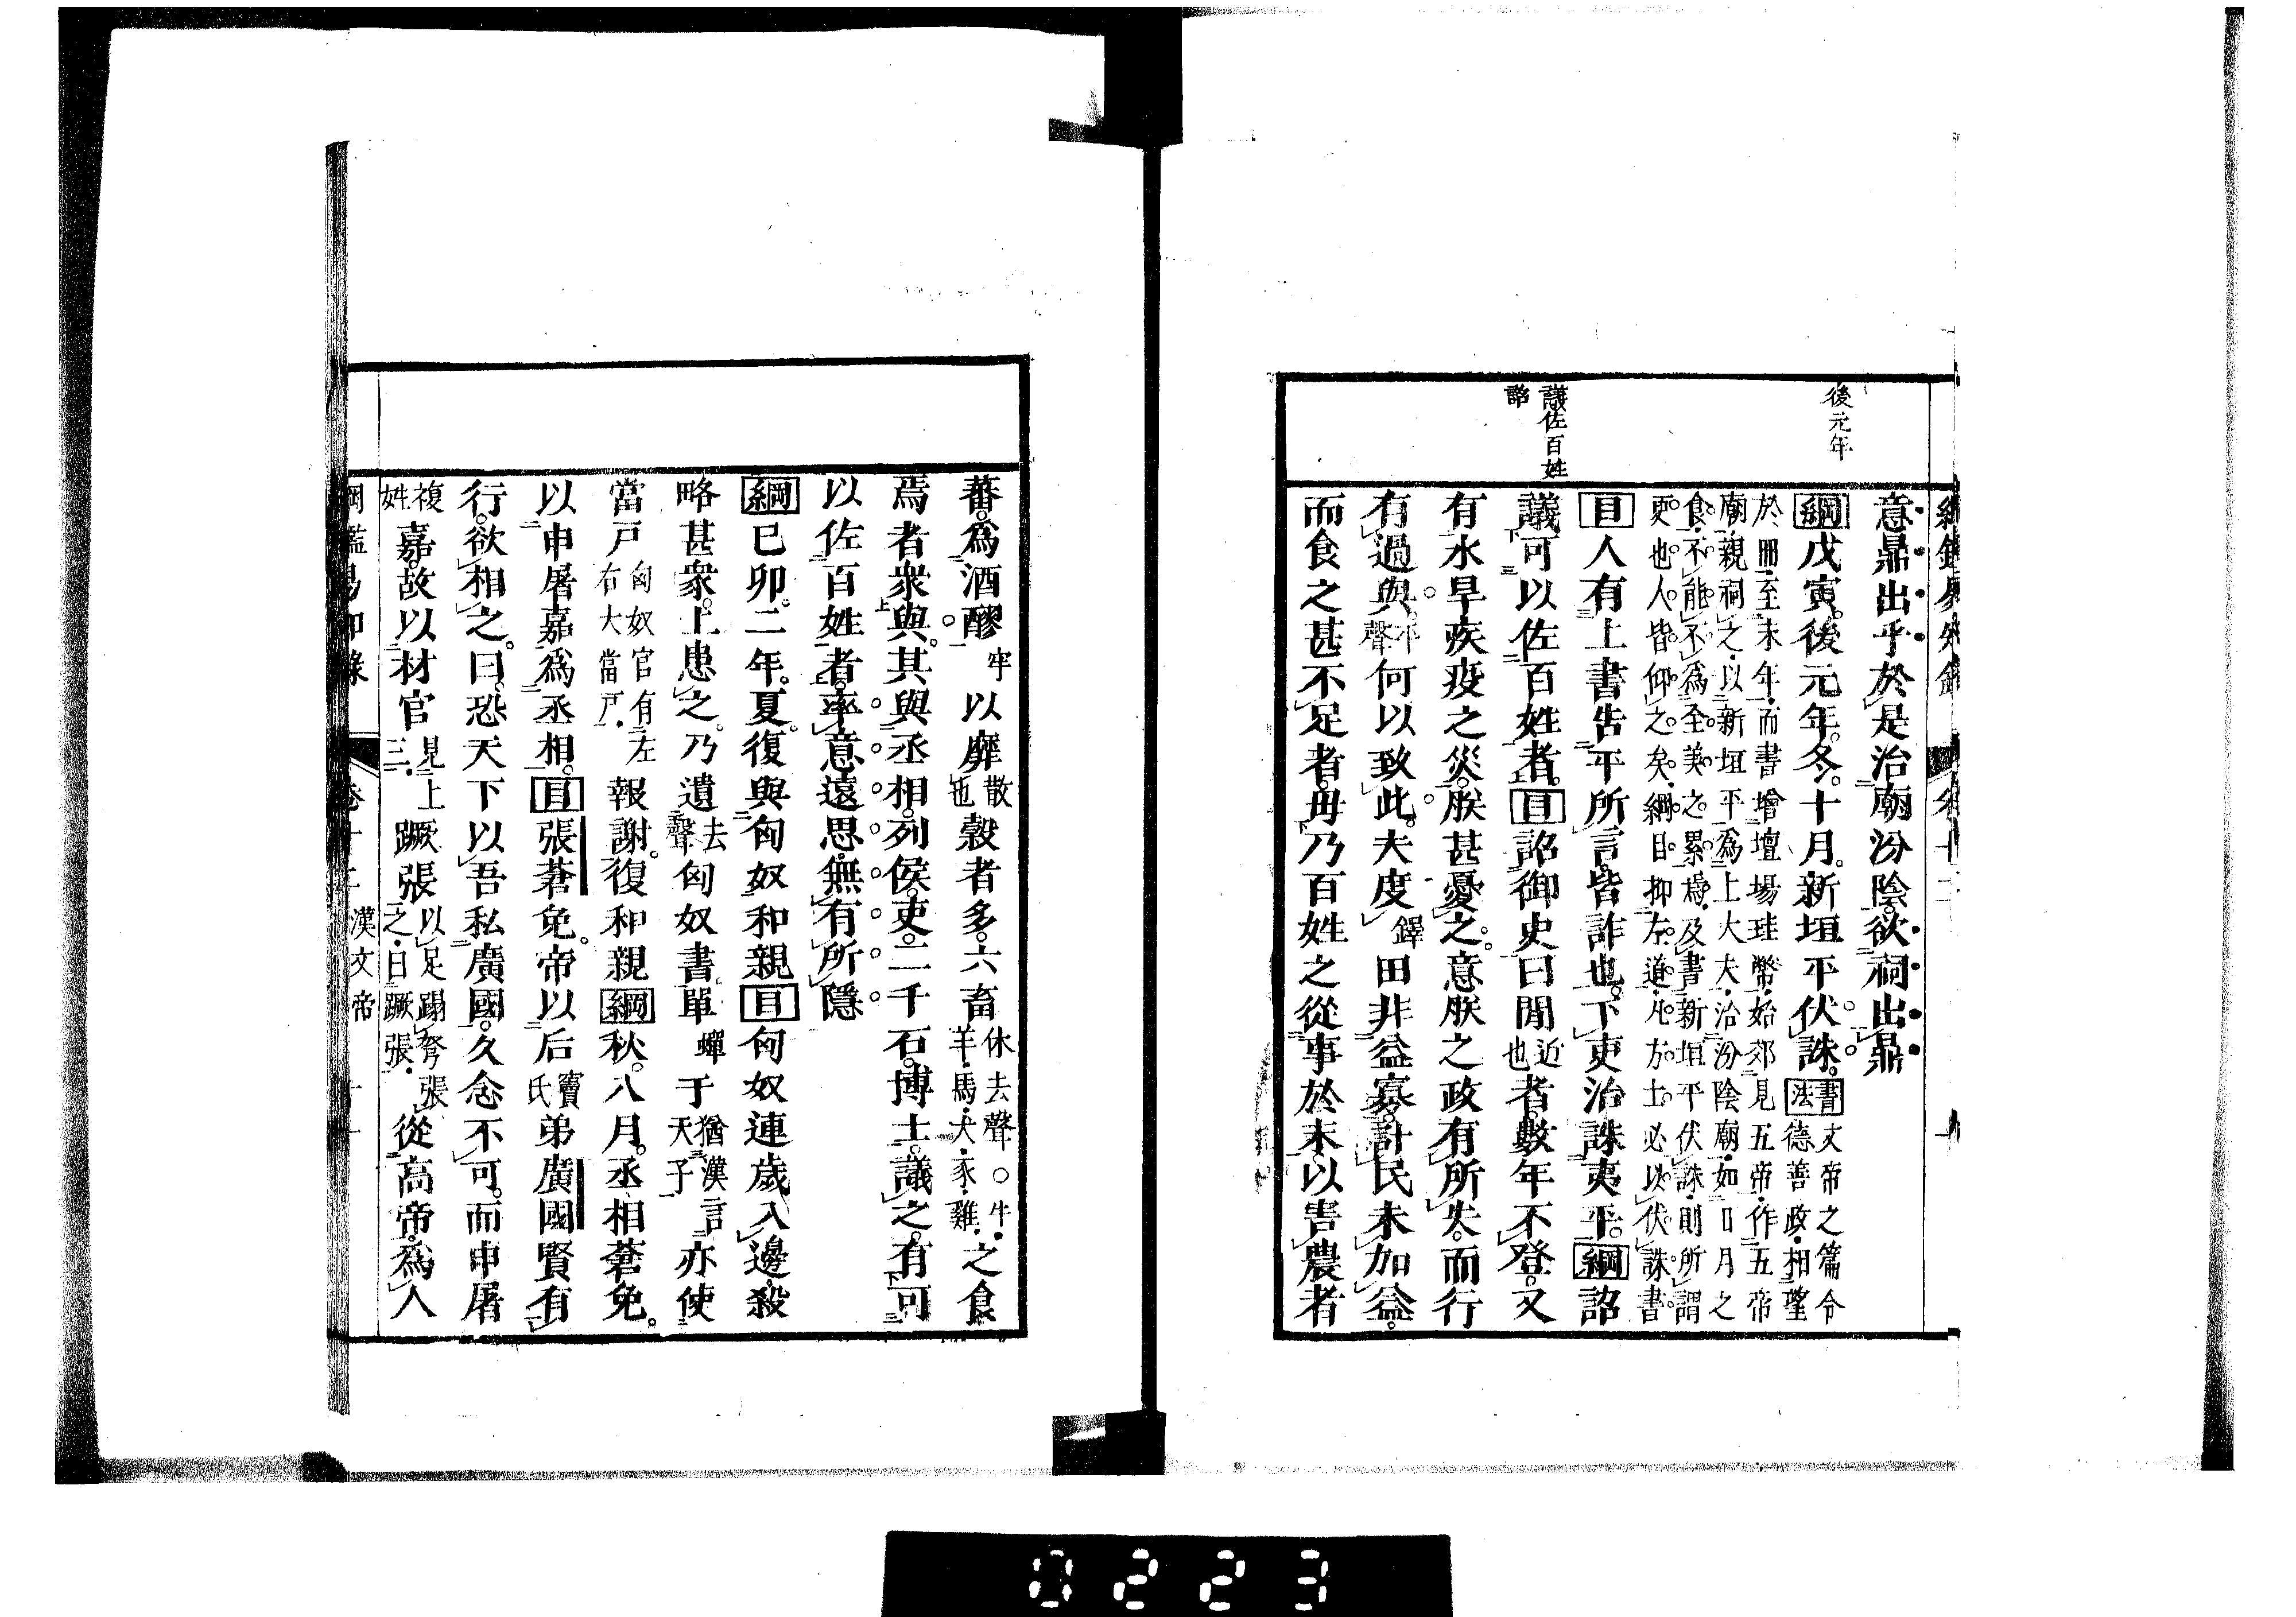 後元年
議佐百姓
詔
意鼎出乎於是治廟汾陰欲祠出鼎
綱戊寅後元年冬十月新垣平伏誅書法文帝之篇令德善政相望
於冊至末年而書增壇場珪幣始郊見五帝作五帝
廟親祠之以新垣平爲上大夫治汾陰廟如日月之
食不能不爲全美之累焉及書新垣平伏誅則所謂
更也人皆仰之矣綱目抑左道凡方士必以伏誅書
目人有上書告平所言皆詐也下吏治誅夷平綱詔
議可以佐百姓者目詔御史曰閒近也者數年不登又
有水旱疾疫之災朕甚憂之意朕之政有所失而行
有過與平聲何以致此夫度鐸田非益寡計民未加益
而食之甚不足者毋乃百姓之從事於末以害農者
蕃爲酒醪牢以靡散也穀者多六畜休去聲○牛羊馬犬豕雞之食
焉者衆與其與丞相列侯吏二千石博士議之有可
以佐百姓者率意遠思無有所隱
綱己卯二年夏復與匈奴和親目匈奴連歲入邊殺
略甚衆上患之乃遺去聲匈奴書單蟬于猶漢言天子亦使
當戶匈奴官有左右大當戶報謝復和親綱秋八月丞相蒼免
以申屠嘉爲丞相目張蒼免帝以后竇氏弟廣國賢有
行欲相之曰恐天下以吾私廣國久念不可而申屠
複姓嘉故以材官見上三蹶張以足蹋弩張之曰蹶張從高帝爲人
綱鑑易知錄 卷十二 漢文帝 十一
0223